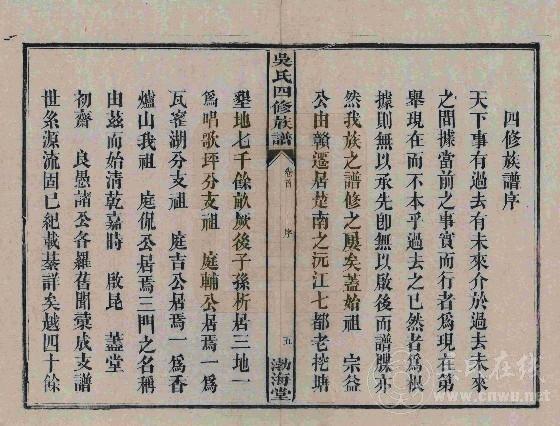 四修族譜序
天下事有過去有未來介於過去未來
之間據當前之事實而行者爲現在第
舉現在而不本乎過去之已然者爲根
據則無以承先卽無以啟後而譜牒亦
然我族之譜修之屢矣蓋始祖 宗益
公由贛遷居楚南之沅江七都老挖塘
吳氏四修族譜
卷首 序 五
渤海堂
墾地七千餘畝厥後子孫析居三地一
爲唱歌坪分支祖 庭輔公居焉一爲
瓦窰湖分支祖 庭吉公居焉一爲香
爐山我祖 庭侃公居焉三門之名稱
由茲而始清乾嘉時 啟昆 蓋堂
初齋 良愚諸公各羅舊聞彚成支譜
世系源流固已紀載綦詳矣越四十餘
吳氏在线
www.cnwu.net